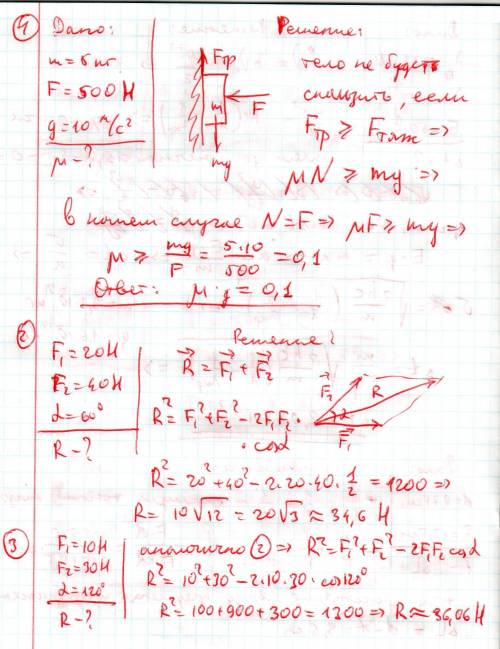 ④ Дано:
m = 5 кг.
F = 500 Н
g = 10 м/с²
μ - ?
Fтр
m
F
mg
Решение:
тело не будет
скользить, если
Fтр ⩾ Fтяж ⇒
μN ⩾ mg ⇒
в нашем случае N = F ⇒ μF ⩾ mg ⇒
μ ⩾ mg/F = 5·10/500 = 0,1
Ответ: μ = 0,1
②
F₁ = 20Н
F₂ = 40Н
α = 60°
R - ?
Решение:
R⃗ = F⃗₁ + F⃗₂
R² = F₁² + F₂² - 2F₁F₂ ·
· cosα
F⃗₂
R
α
F⃗₁
R² = 20² + 40² - 2·20·40·1/2 = 1200 ⇒
R = 10√12 = 20√3 ≈ 34,6 Н
③
F₁ = 10Н
F₂ = 30Н
α = 120°
R - ?
аналогично ② ⇒ R² = F₁² + F₂² - 2F₁F₂ cosα
R² = 10² + 30² - 2·10·30·cos120°
R² = 100 + 900 + 300 = 1300 ⇒ R ≈ 36,06 Н